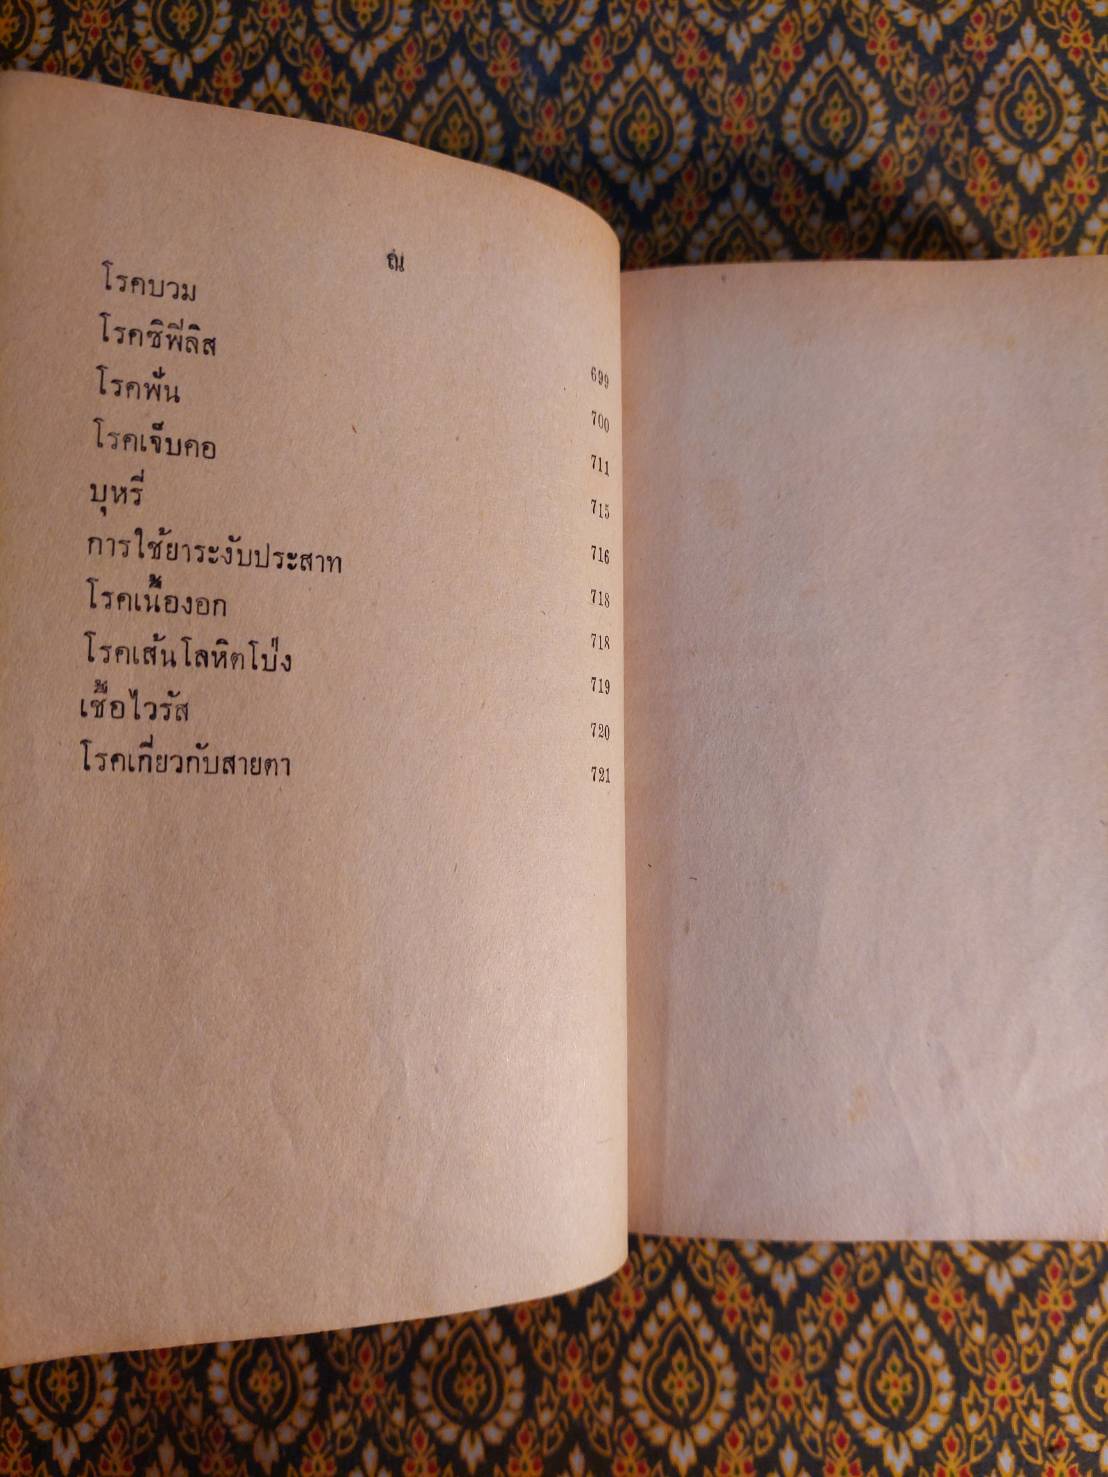 ณ
โรคบวม 699
โรคซิฟีลิส 700
โรคฟัน 711
โรคเจ็บคอ 715
บุหรี่ 716
การใช้ยาระงับประสาท 718
โรคเนื้องอก 718
โรคเส้นโลหิตโป่ง 719
เชื้อไวรัส 720
โรคเกี่ยวกับสายตา 721